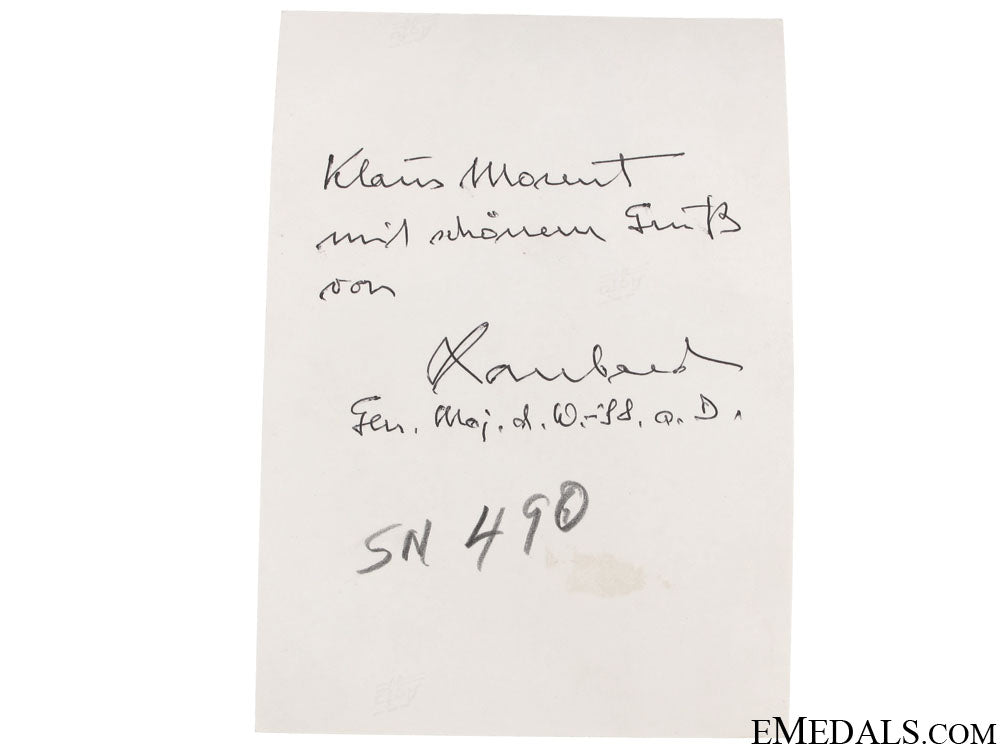 Klaus Morent
mit schönem Gruß
von
Lombard
Gen. Maj. d. W.-SS. a. D.
SN 490
EMEDALS.COM